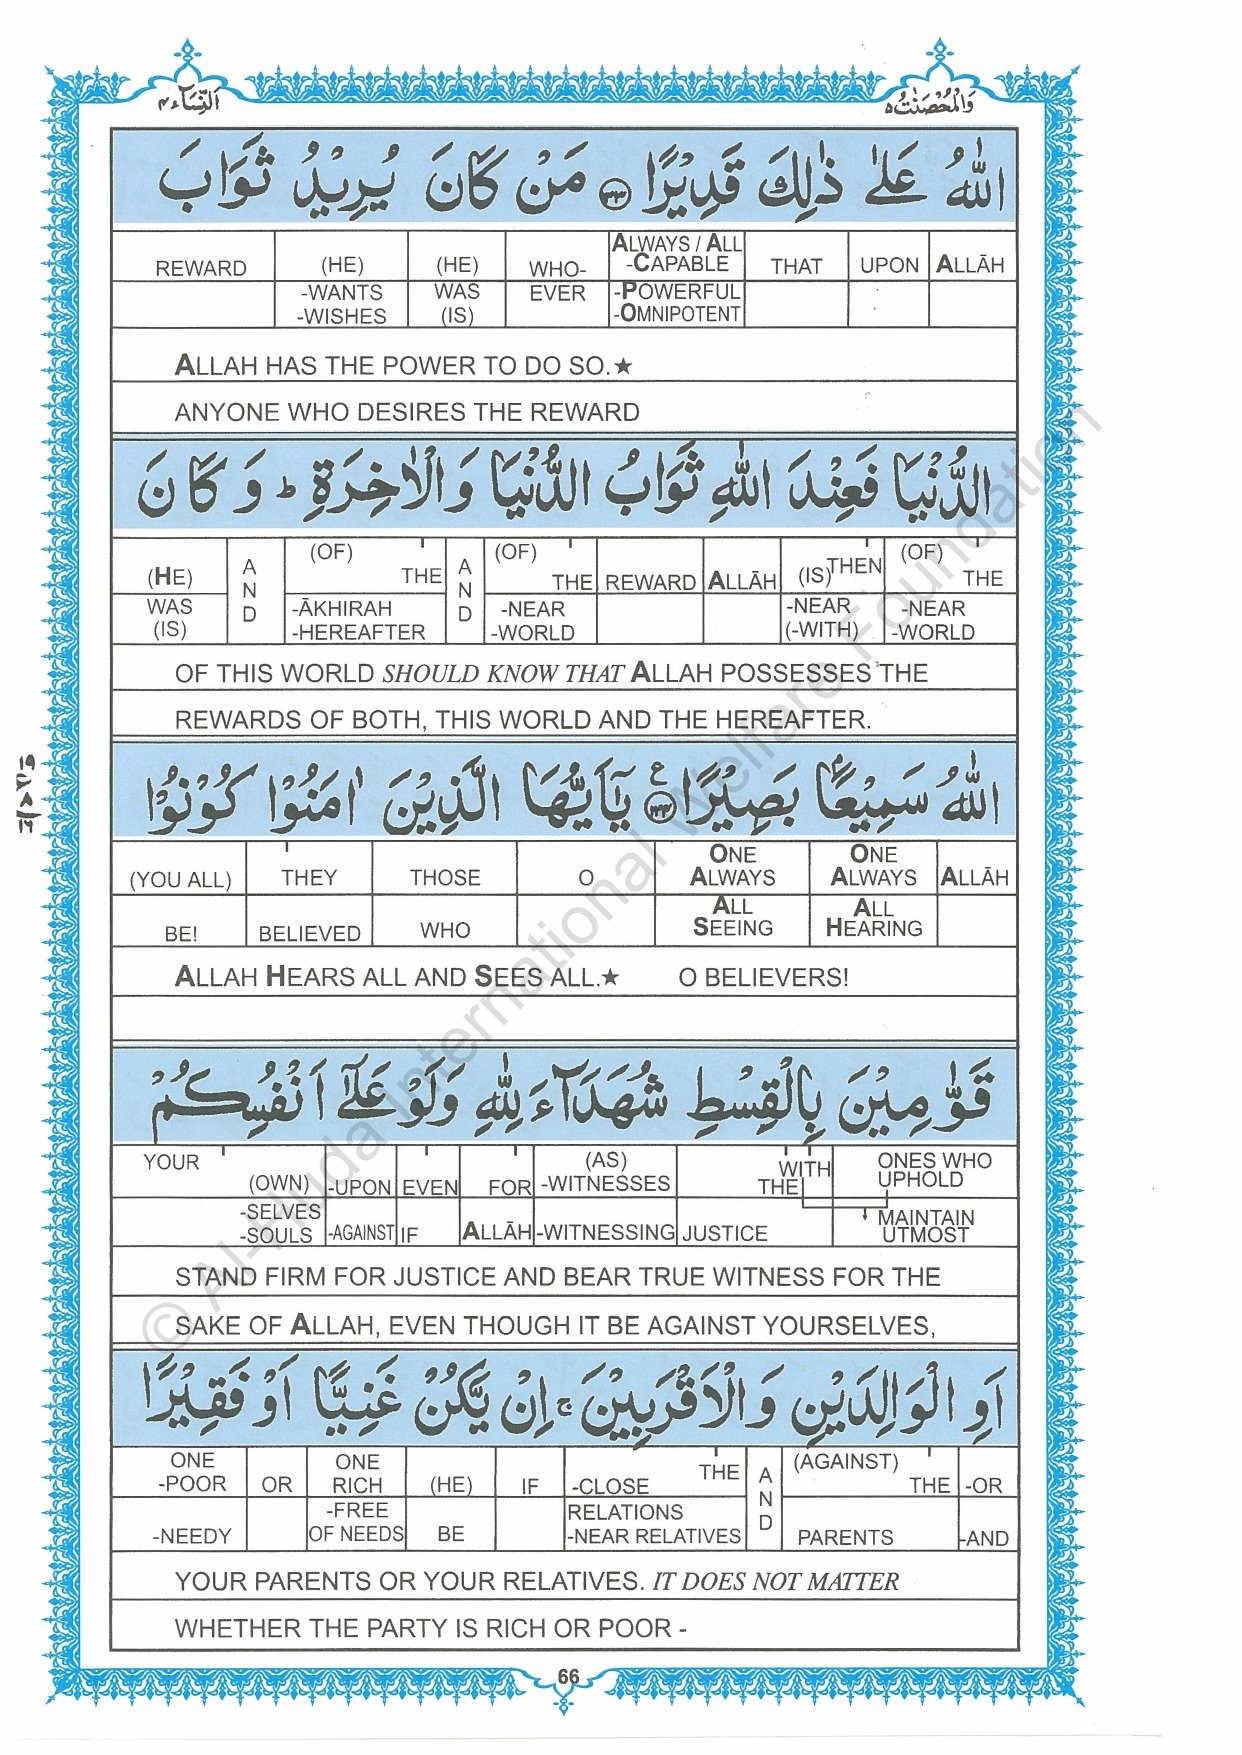 اَلنِّسَآء ٤
وَالْمُحْصَنٰتُ ٥
اللّٰهُ عَلٰى ذٰلِكَ قَدِيْرًا ۝١٣٣ مَنْ كَانَ يُرِيْدُ ثَوَابَ
REWARD (HE) (HE) WHO- ALWAYS / ALL -CAPABLE THAT UPON ALLĀH
-WANTS -WISHES WAS (IS) EVER -POWERFUL -OMNIPOTENT
ALLAH HAS THE POWER TO DO SO.★
ANYONE WHO DESIRES THE REWARD
الدُّنْيَا فَعِنْدَ اللّٰهِ ثَوَابُ الدُّنْيَا وَالْاٰخِرَةِ ؕ وَ كَانَ
(HE) AND (OF) THE AND (OF) THE REWARD ALLĀH (IS) THEN (OF) THE
WAS (IS) -ĀKHIRAH -HEREAFTER -NEAR -WORLD -NEAR (-WITH) -NEAR -WORLD
OF THIS WORLD SHOULD KNOW THAT ALLAH POSSESSES THE
REWARDS OF BOTH, THIS WORLD AND THE HEREAFTER.
اللّٰهُ سَمِيْعًۢا بَصِيْرًا ۝١٣٤ ع يٰۤاَيُّهَا الَّذِيْنَ اٰمَنُوْا كُوْنُوْا
(YOU ALL) THEY THOSE O ONE ALWAYS ONE ALWAYS ALLĀH
BE! BELIEVED WHO ALL SEEING ALL HEARING
ALLAH HEARS ALL AND SEES ALL.★ O BELIEVERS!
قَوّٰمِيْنَ بِالْقِسْطِ شُهَدَآءَ لِلّٰهِ وَلَوْ عَلٰۤى اَنْفُسِكُمْ
YOUR (OWN) -UPON EVEN FOR (AS) -WITNESSES WITH THE ONES WHO UPHOLD
-SELVES -SOULS -AGAINST IF ALLĀH -WITNESSING JUSTICE MAINTAIN UTMOST
STAND FIRM FOR JUSTICE AND BEAR TRUE WITNESS FOR THE
SAKE OF ALLAH, EVEN THOUGH IT BE AGAINST YOURSELVES,
اَوِ الْوَالِدَيْنِ وَالْاَقْرَبِيْنَ ۚ اِنْ يَّكُنْ غَنِيًّا اَوْ فَقِيْرًا
ONE -POOR OR ONE RICH (HE) IF -CLOSE THE AND (AGAINST) THE -OR
-NEEDY -FREE OF NEEDS BE RELATIONS -NEAR RELATIVES PARENTS -AND
YOUR PARENTS OR YOUR RELATIVES. IT DOES NOT MATTER
WHETHER THE PARTY IS RICH OR POOR -
66
© Al-Huda International Welfare Foundation